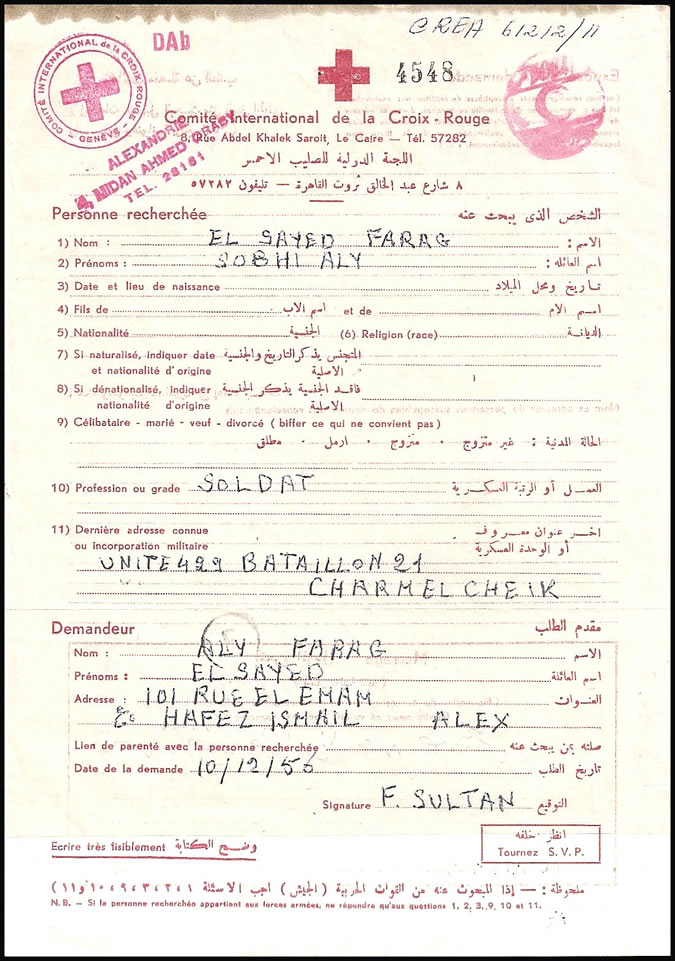 CREA 61212/11
DAb
COMITÉ INTERNATIONAL de la CROIX-ROUGE
GENÈVE
4548
Comité International de la Croix-Rouge
8, Rue Abdel Khalek Saroit, Le Caire — Tél. 57282
ALEXANDRIE
4, MIDAN AHMED ORABY
TEL. 28161
اللجنة الدولية للصليب الاحمر
٨ شارع عبد الخالق ثروت القاهرة — تليفون ٥٧٢٨٢
Personne recherchée الشخص الذى يبحث عنه
1) Nom : EL SAYED FARAG الاسم :
2) Prénoms : SOBHI ALY اسم العائله :
3) Date et lieu de naissance تاريخ ومحل الميلاد
4) Fils de اسم الاب et de اسم الام
5) Nationalité الجنسية (6) Religion (race) الديانة
7) Si naturalisé, indiquer date المتجنس يذكر التاريخ والجنسية
et nationalité d'origine الاصلية
8) Si dénationalisé, indiquer فاقد الجنسية يذكر الجنسية
nationalité d'origine الاصلية
9) Célibataire - marié - veuf - divorcé (biffer ce qui ne convient pas)
الحالة المدنية : غير متزوج · متزوج · ارمل · مطلق
10) Profession ou grade SOLDAT العمل أو الرتبة العسكرية
11) Dernière adresse connue اخر عنوان معروف
ou incorporation militaire أو الوحدة العسكرية
UNITE 429 BATAILLON 21
CHARMEL CHEIK
Demandeur مقدم الطلب
Nom : ALY FARAG الاسم
Prénoms : EL SAYED اسم العائلة
Adresse : 101 RUE EL EMAM العنوان
HAFEZ ISMAIL ALEX
Lien de parenté avec la personne recherchée صلته بمن يبحث عنه
Date de la demande 10/12/56 تاريخ الطلب
Signature F. SULTAN التوقيع
Ecrire très lisiblement وضح الكتابة
انظر خلفه
Tournez S.V.P.
ملحوظة : — إذا المبحوث عنه من القوات الحربية (الجيش) اجب الاسئلة ١،٢،٣،٩،١٠ و١١)
N.B. – Si la personne recherchée appartient aux forces armées, ne répondre qu'aux questions 1, 2, 3, 9, 10 et 11.